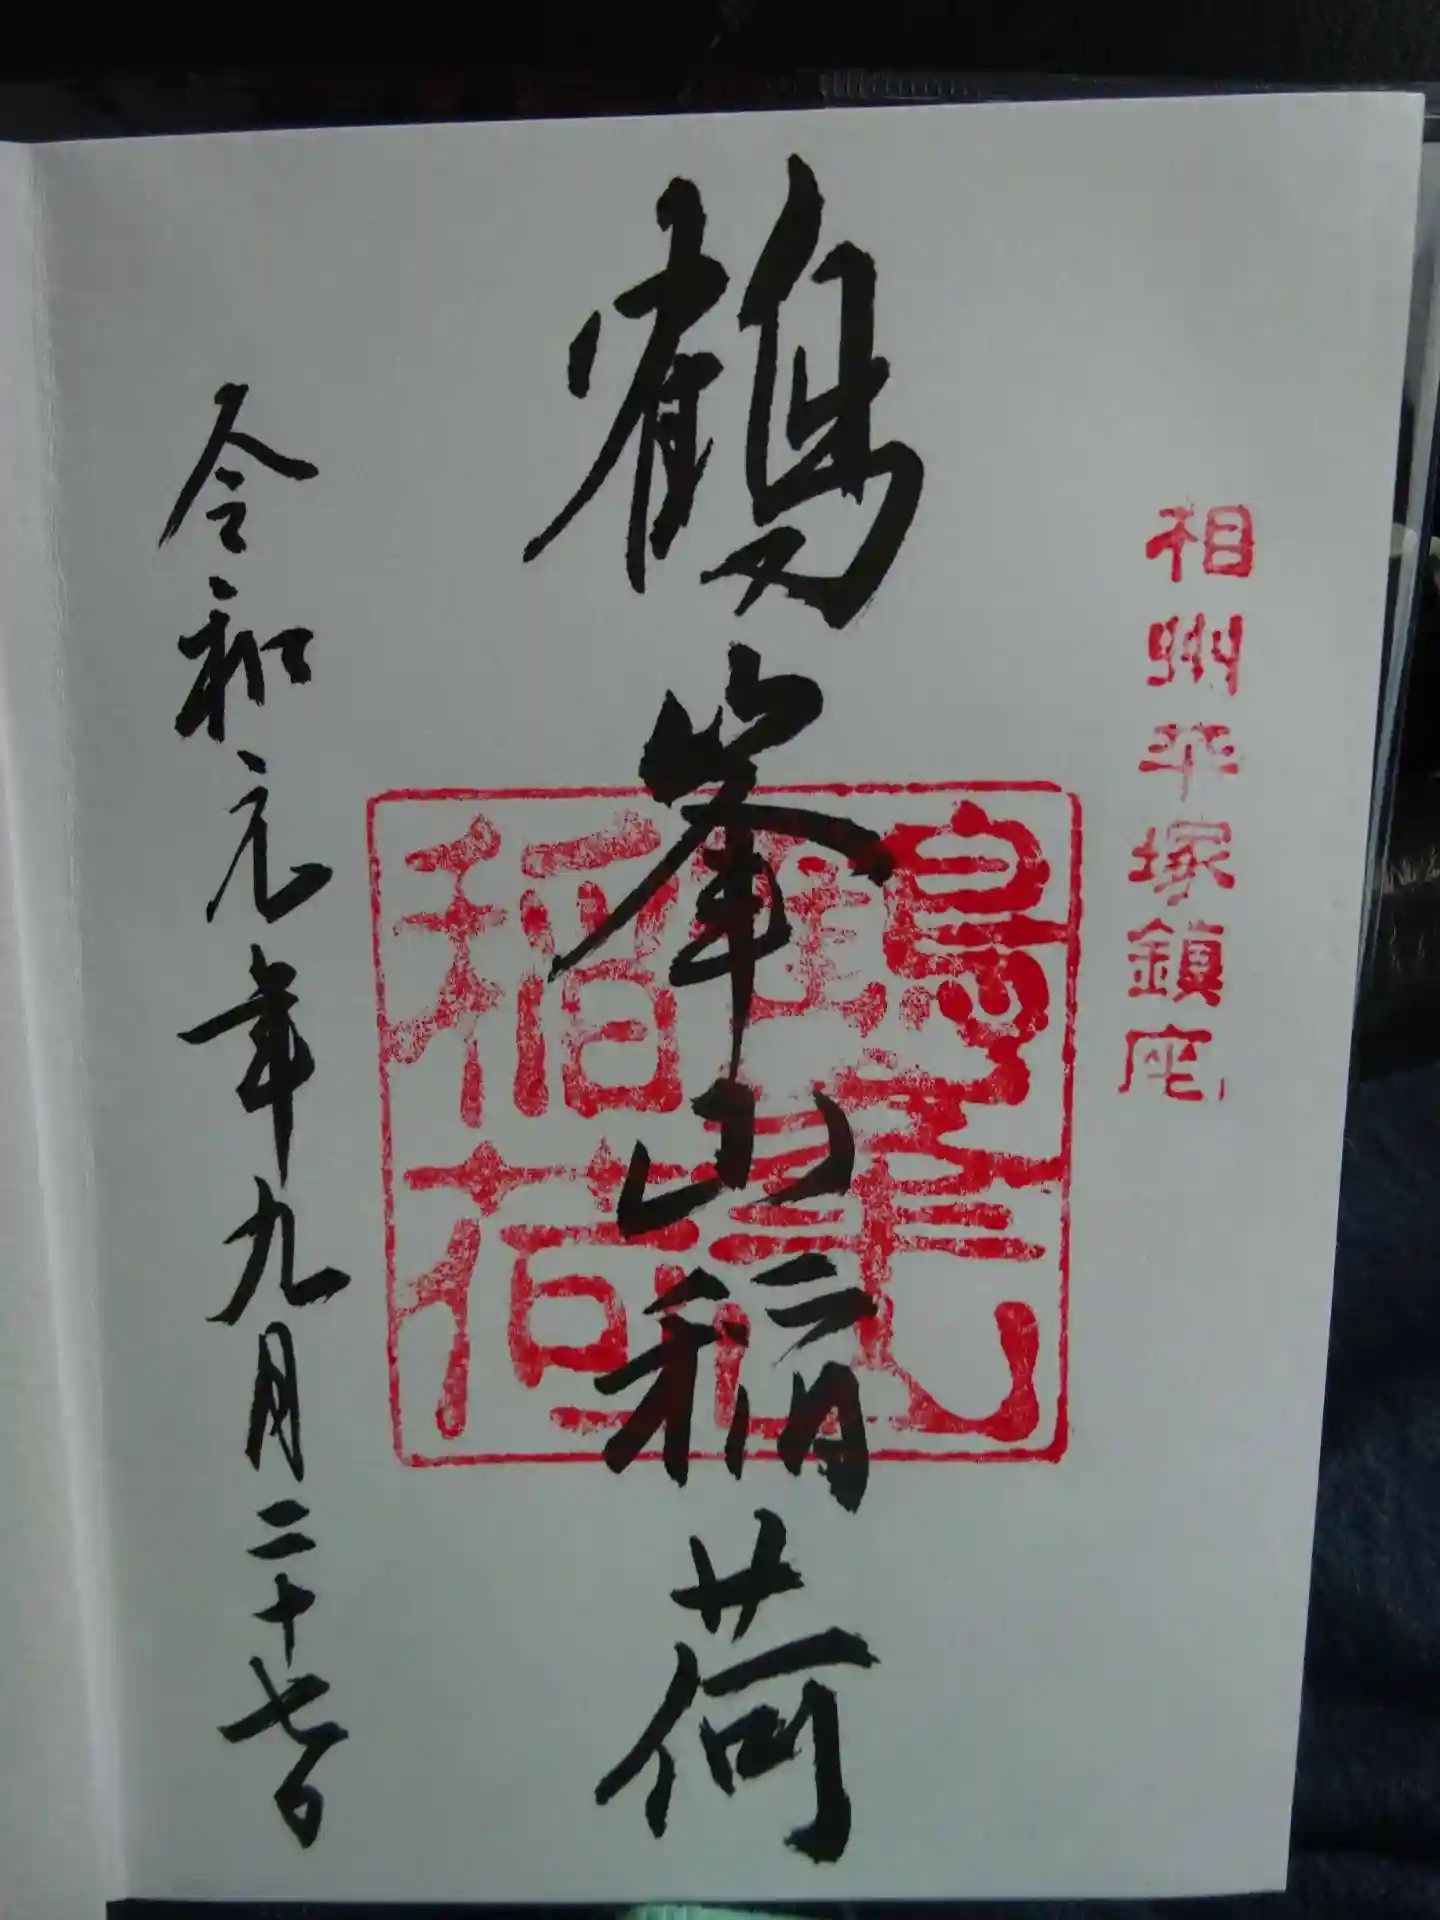 相州平塚鎮座
鶴峯山稲荷
稲荷
令和元年九月二十七日